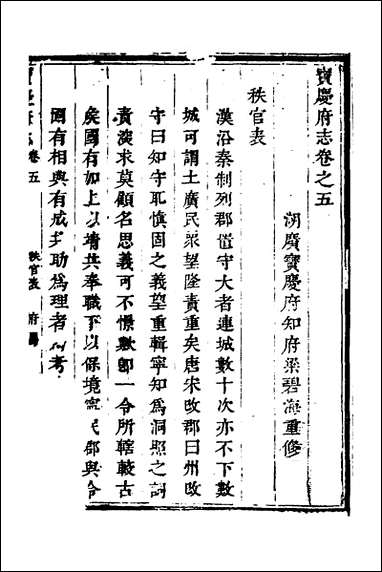 寶慶府志卷之五
湖廣寶慶府知府梁碧海重修
秩官表
漢沿秦制列郡置守大者連城數十次亦不下數
城可謂土廣民眾望隆責重矣唐宋改郡曰州改
守曰知守耽慎固之義望重輯寧知為洞照之詞
責深求莫顧名思義可不憬歟即一令所轄較古
矦國有如上以靖共奉職下以保境寧民郡與令
固有相與有成功為理者
卷五
秩官表
府